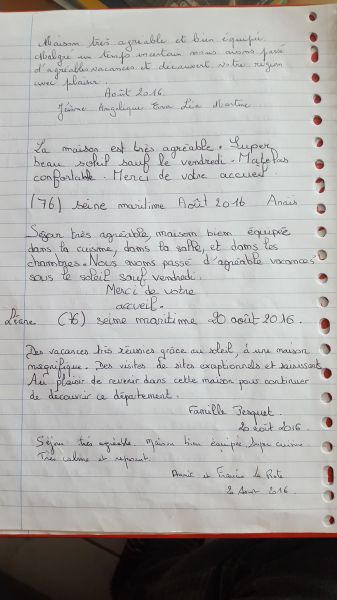 Maison très agréable et bien équipée
Malgré un temps incertain nous avons passé
d'agréables vacances et decouvert votre région
avec plaisir.
Août 2016.
Jérôme Angélique Eva Léa Martine
La maison est très agréable. Super
beau soleil sauf le vendredi. Matelas
confortable. Merci de votre accueil
(76) seine maritime Août 2016 Anais
Séjour très agréable, maison bien équipée
dans la cuisine, dans la salle, et dans les
chambres. Nous avons passé d'agréable vacances
sous le soleil sauf vendredi.
Merci de votre
accueil.
Liane (76) seime maritime 20 août 2016.
Des vacances très réussies grâce au soleil, à une maison
magnifique. Des visites de sites exceptionnels et
Au plaisir de revenir dans cette maison pour continuer
de decouvrir ce département.
Famille
20 août 2016.
Séjour très agréable, maison bien équipée, super cuisine.
Très calme et reposant.
Annie et Francis Le
2 Août 2016